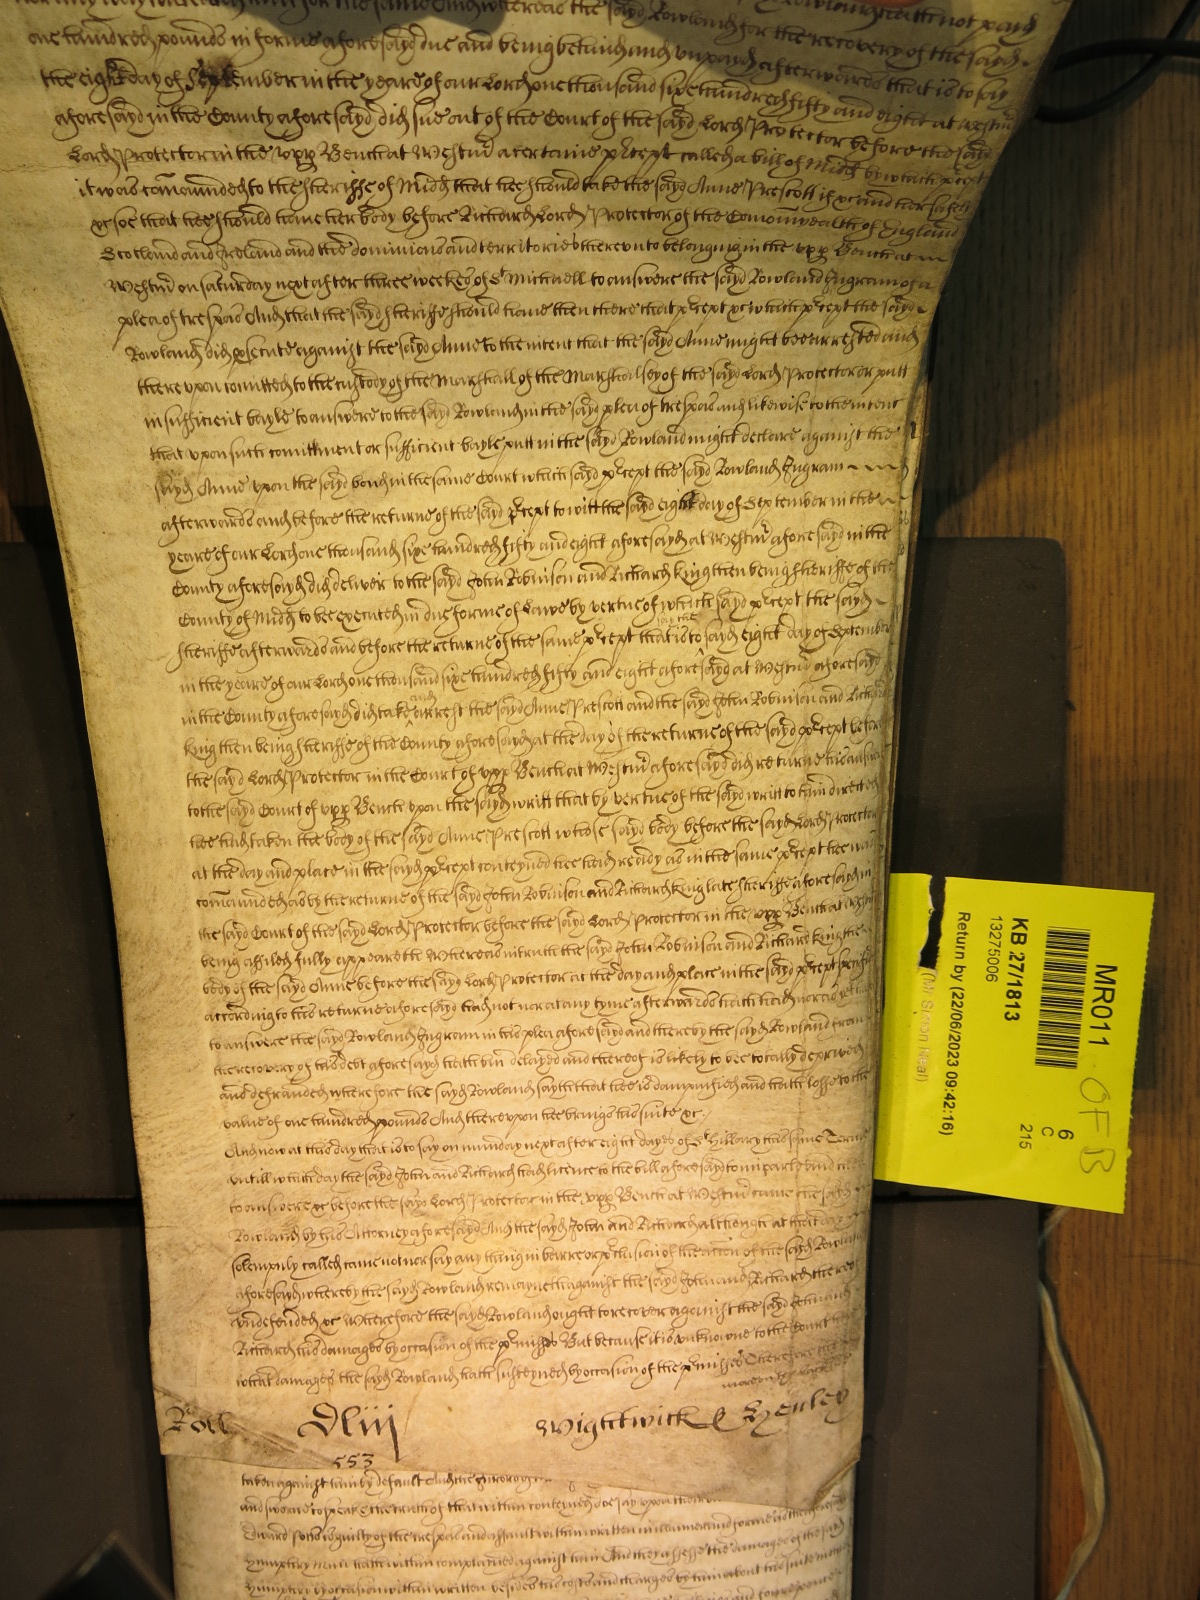 one hundred pounds in forme aforesayd due and being behind and unpayd afterwards that is to say
the eight day of September in the yeare of our Lord one thousand six hundred fifty and eight at Westmr
aforesayd in the County aforesayd did sue out of the Court of the sayd Lord Protector before the sayd
Lord Protector in the upp Bench at Westmr a certaine pcept called a bill of Midd by which pcept
it was comaunded to the Sheriffe of Midd that hee should take the sayd Anne Prescott if &c and her safely
&c soe that hee should have her body before Richard Lord Protector of the Comonwealth of England
Scotland and Ireland and the dominions and territories thereunto belonging in the upp Bench at
Westmr on saturday next after three weekes of St Michaell to answere the sayd Rowland Ingram of a
plea of trespas And that the sayd Sheriffe should have then there that pcept which pcept the sayd
Rowland did psecute against the sayd Anne to the intent that the sayd Anne might bee arrested and
thereupon comitted to the custody of the Marshall of the Marshalsey of the sayd Lord Protector or putt
in sufficient bayle to answere to the sayd Rowland in the sayd plea of trespas and likewise to the intent
that upon such comittment or sufficient bayle putt in the sayd Rowland might declare against the
sayd Anne upon the sayd bond in the same Court which sayd pcept the sayd Rowland Ingram
afterwards and before the returne of the sayd pcept to witt the sayd eight day of September in the
yeare of our Lord one thousand six hundred fifty and eight aforesayd at Westmr aforesayd in the
County aforesayd did deliver to the sayd John Robinson and Richard King then being Sheriffe of the
County of Midd to bee executed in due forme of Lawe by vertue of which sayd pcept the sayd
Sheriffe afterwards and before the returne of the same pcept that is to say the sayd eight day of September
in the yeare of our Lord one thousand six hundred fifty and eight aforesayd at Westmr aforesayd
in the County aforesayd did take and arrest the sayd Anne Prescott and the sayd John Robinson and Richard
King then being Sheriffe of the County aforesayd at the day of the returne of the sayd pcept before
the sayd Lord Protector in the Court of upp Bench at Westmr aforesayd did returne
to the sayd Court of upp Bench upon the sayd writt that by vertue of the sayd writt to him directed
hee had taken the body of the sayd Anne Prescott whose sayd body before the sayd Lord Protector
at the day and place in the sayd pcept conteyned hee had ready as in the same pcept hee was
comaunded as by the returne of the sayd John Robinson and Richard King late Sheriffe aforesayd in
the sayd Court of the sayd Lord Protector before the sayd Lord Protector in the upp Bench at Westmr
being affiled fully appeareth Whereas in truth the sayd John Robinson and Richard King the
body of the sayd Anne before the sayd Lord Protector at the day and place in the sayd pcept
according to his returne aforesayd had not nor at any tyme afterwards hath had nor as yet
to answere the sayd Rowland Ingram in his plea aforesayd and thereby the sayd Rowland from
the recovery of his debt aforesayd hath bin delayed and thereof is likely to bee totally deprived
and defrauded wherefore the sayd Rowland sayth that hee is dampnified and hath losse to the
value of one hundred pounds And thereupon hee brings his suite &c.
And now at this day that is to say on munday next after eight dayes of St Hillary this same Terme
untill which day the sayd John and Richard had licence to the bill aforesayd to imparle and then
to answere &c before the sayd Lord Protector in the upp Bench at Westmr came the sayd
Rowland by his Attorney aforesayd And the sayd John and Richard although at that day
solempnly called came not nor say any thing in barre or pclusion of the action of the sayd Rowland
aforesayd whereby the sayd Rowland remayneth against the sayd John and Richard thereof
undefended &c Wherefore the sayd Rowland ought to recover against the sayd John and
Richard his damages by occasion of the pmisses But because it is unknowne to the Court
what damages the sayd Rowland hath susteyned by occasion of the pmisses therefore
Roll Dliij Wightwick & Henley
553
taken against him by default And the Jurors
and sworne to speake the truth of that within conteyned doe say upon their
Edward is guilty of the trespas and assault within written in manner and forme as the
Humphry hath within complayned against him And they assesse the damages of the sayd
Humphry by occasion within written besides his costs and charges by him about his suite
MR011
OFB
6
C
215
KB 27/1813
13275006
Return by (22/06/2023 09:42:16)
(Mr Simon Neal)